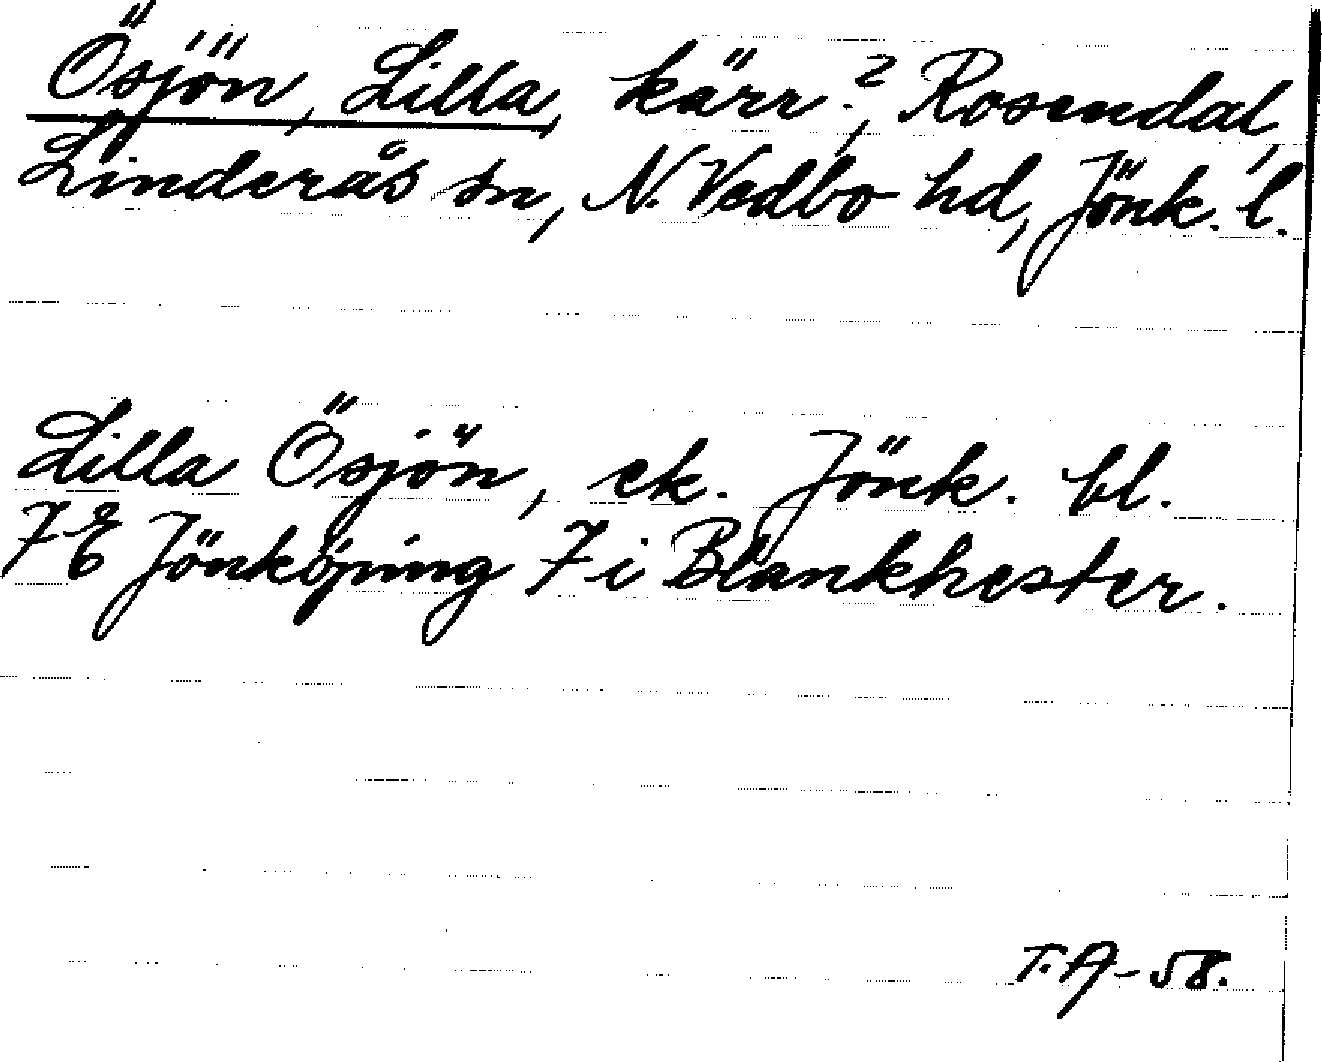 Ösjön, Lilla, kärr?, Rosendal,
Linderås sn, N. Vedbo hd, Jönk. l.
Lilla Ösjön, ek. Jönk. bl.
7E Jönköping 7 i Blankhester.
T.A-58.